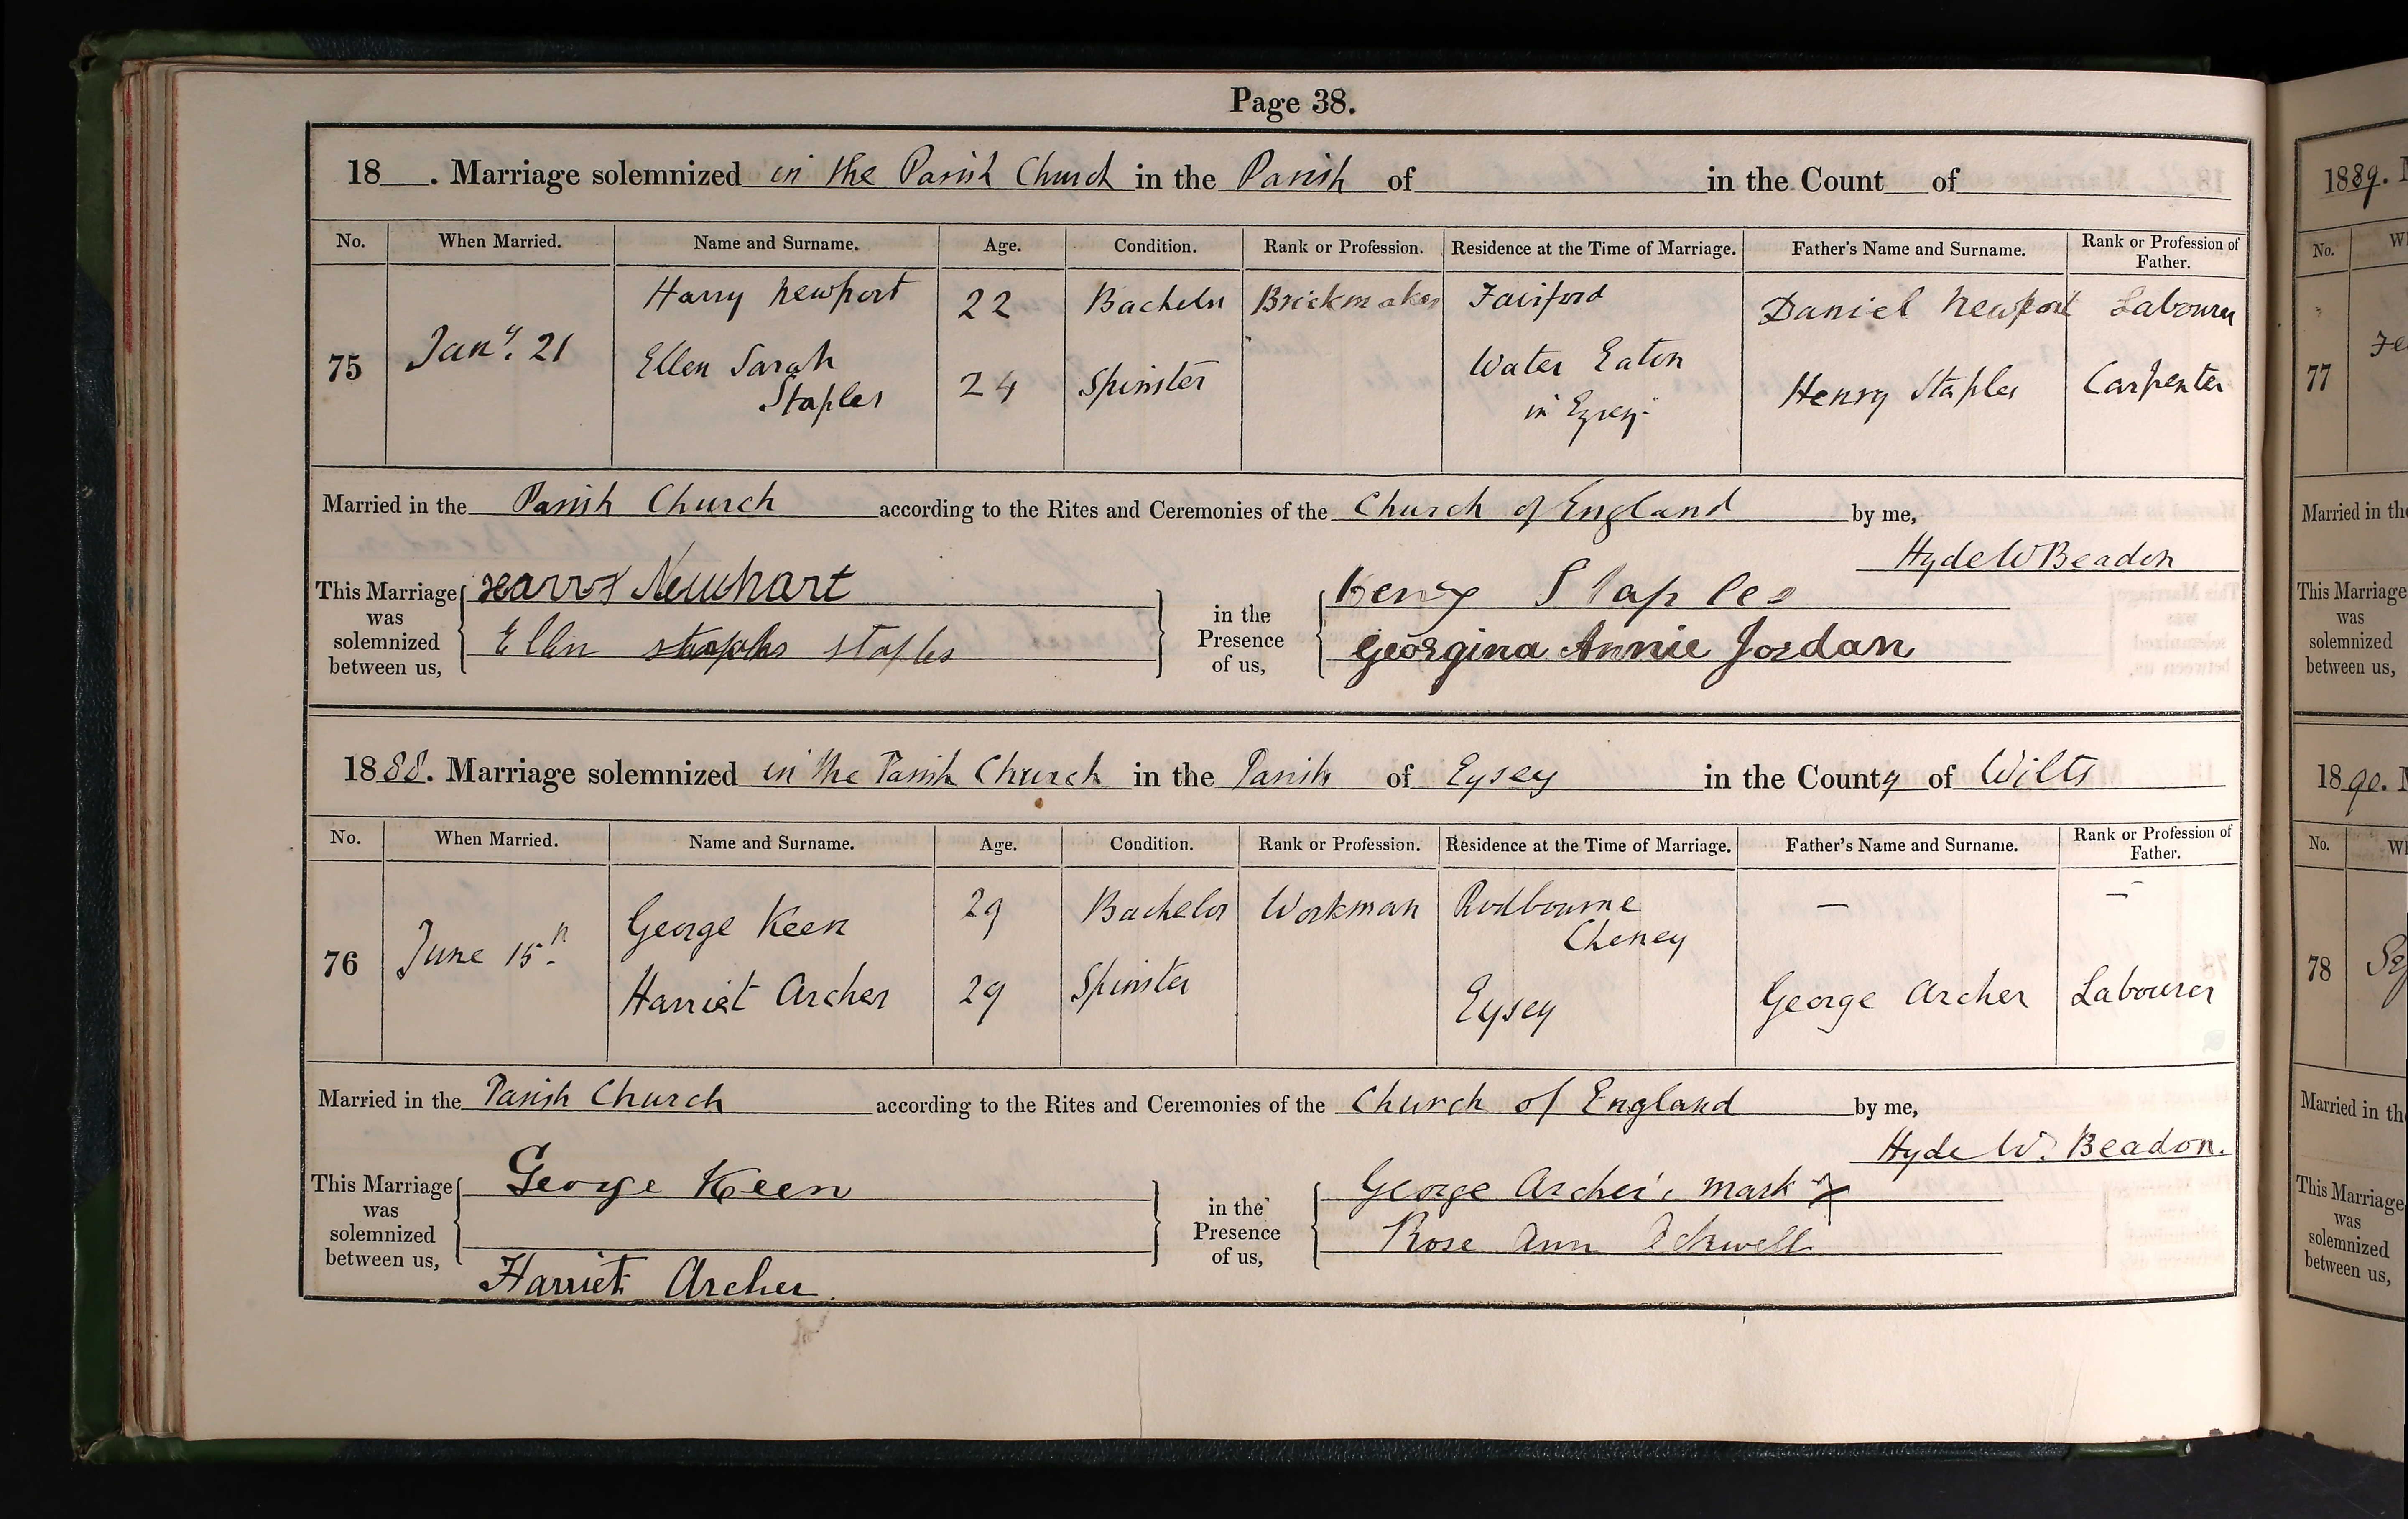 Page 38.
18 . Marriage solemnized in the Parish Church in the Parish of in the Count of
No. When Married. Name and Surname. Age. Condition. Rank or Profession. Residence at the Time of Marriage. Father's Name and Surname. Rank or Profession of Father.
75 Jany. 21 Harry Newport 22 Bachelor Brickmaker Fairford Daniel Newport Labourer
Ellen Sarah Staples 24 Spinster Water Eaton in Eysey Henry Staples Carpenter
Married in the Parish Church according to the Rites and Ceremonies of the Church of England by me,
Hyde W Beadon
This Marriage was solemnized between us, Harry Newport
Ellen staples staples
in the Presence of us, Henry Staples
Georgina Annie Jordan
1888. Marriage solemnized in the Parish Church in the Parish of Eysey in the County of Wilts
No. When Married. Name and Surname. Age. Condition. Rank or Profession. Residence at the Time of Marriage. Father's Name and Surname. Rank or Profession of Father.
76 June 15th George Keen 29 Bachelor Workman Rodbourne Cheney — —
Harriet Archer 29 Spinster Eysey George Archer Labourer
Married in the Parish Church according to the Rites and Ceremonies of the Church of England by me,
Hyde W. Beadon.
This Marriage was solemnized between us, George Keen
Harriet Archer
in the Presence of us, George Archer's mark X
Rose Ann
1889.
No.
77
Married in the
This Marriage was solemnized between us,
1890.
No.
78
Married in the
This Marriage was solemnized between us,